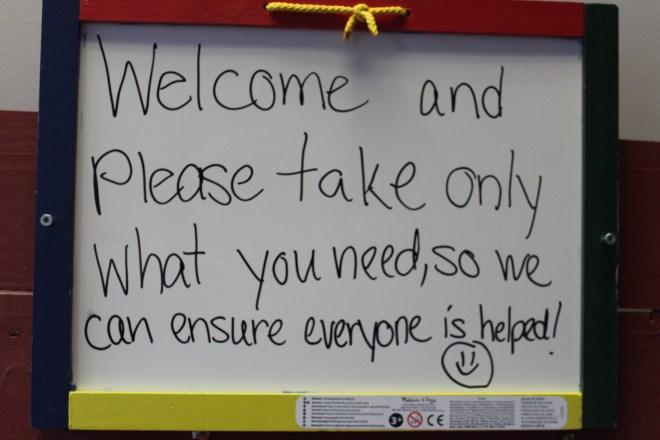 Welcome and
Please take only
What you need, so we
can ensure everyone is helped!
Melissa & Doug
3+
CE